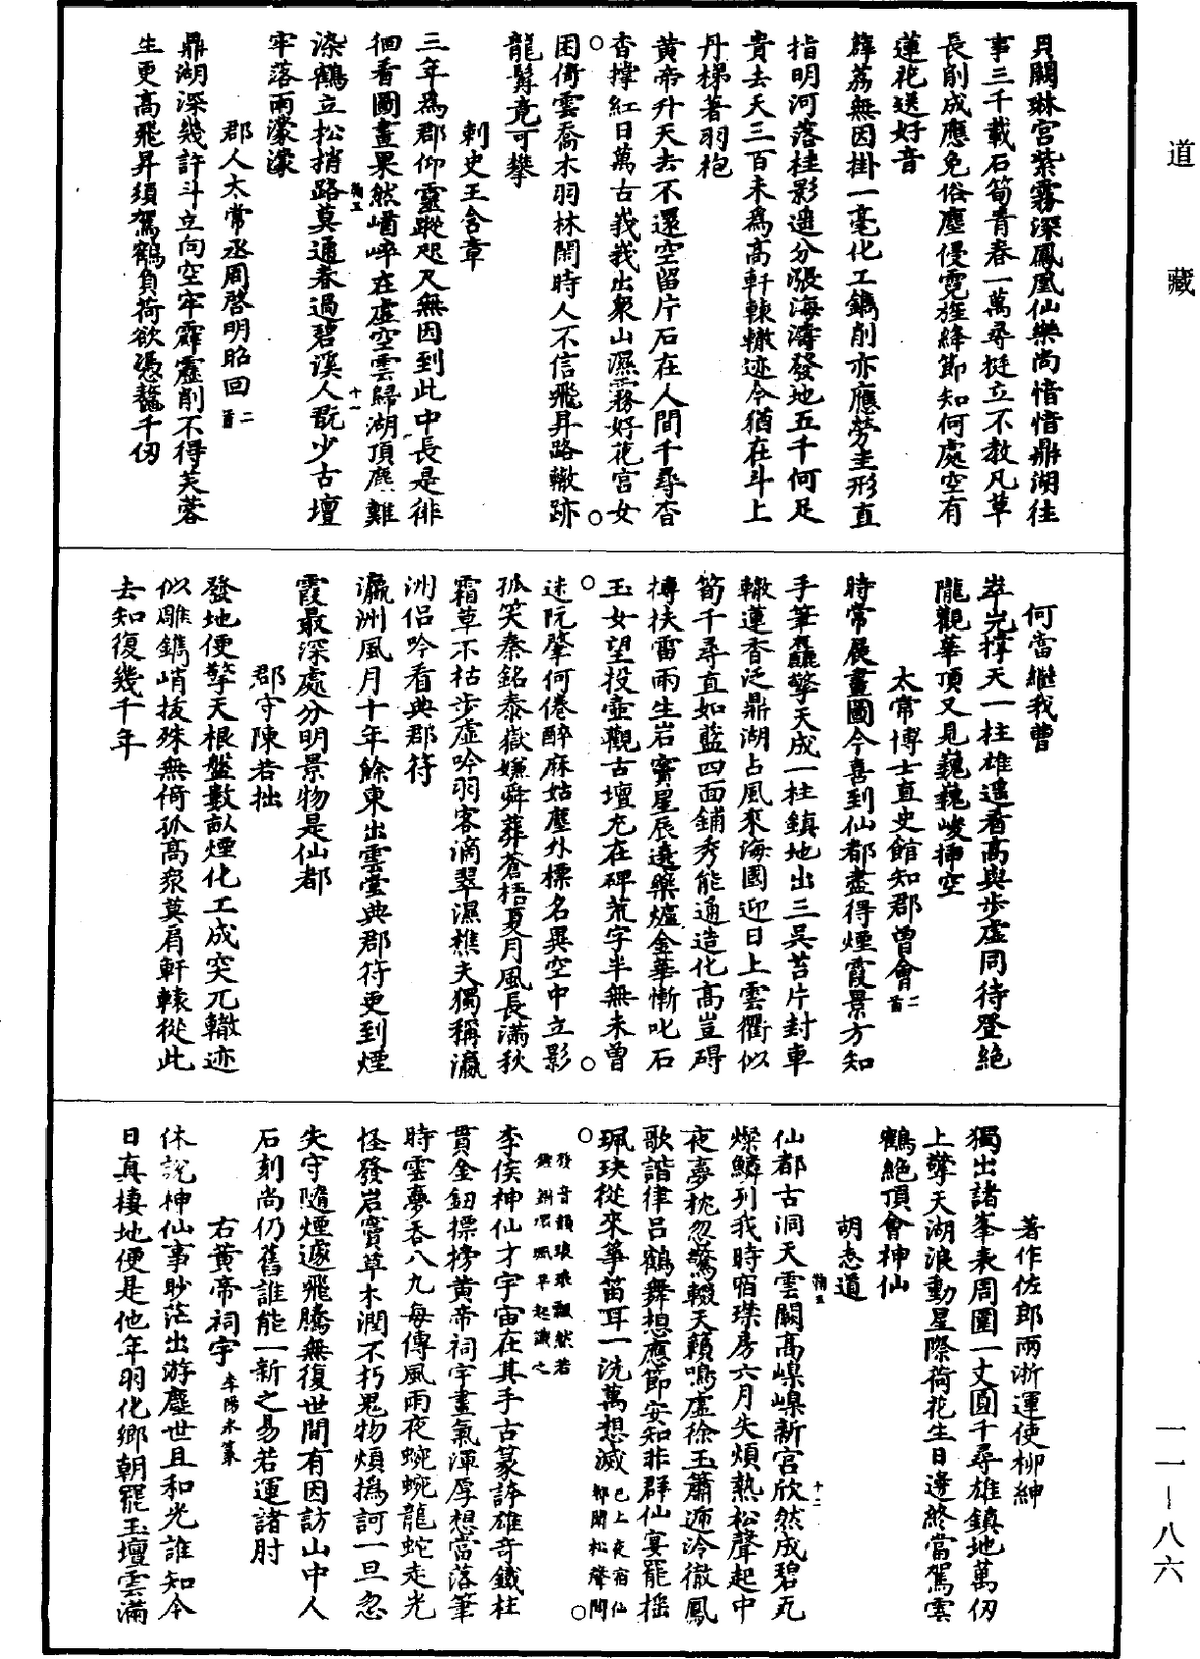 道藏
貝闕琳宮紫霧深鳳凰仙樂尚愔愔鼎湖往
事三千載石筍青春一萬尋挺立不教凡草
長削成應免俗塵侵霓旌絳節知何處空有
蓮花送好音
薜荔無因掛一毫化工鐫削亦應勞圭形直
指明河落桂影遥分漲海濤發地五千何足
貴去天三百未爲高軒轅轍迹今猶在斗上
丹梯著羽袍
黄帝升天去不還空留片石在人間千尋杳
杳撑紅日萬古峩峩出衆山濕霧好花宮女
○困倚雲喬木羽林閑時人不信飛昇路轍跡○
龍髯竟可攀
刺史王含章
三年爲郡仰靈蹤咫尺無因到此中長是徘
徊看圖畫果然崷崒在虛空雲歸湖頂麁難
染鶴立松捎路莫通春過碧溪人既少古壇
牢落雨濛濛
十一
郡人太常丞周啓明昭回二首
鼎湖深幾許斗立向空牢霹靂削不得芙蓉
生更高飛昇須駕鶴負荷欲憑鼇千仞
何當繼我曹
崒屼撑天一柱雄遥看高與步虛同待登絶
隴觀華頂又見巍巍峻揷空
太常博士直史館知郡曽會二首
時常展畫圖今喜到仙都盡得煙霞景方知
手筆麤擎天成一柱鎮地出三吳苔片封車
轍蓮香泛鼎湖占風來海國迎日上雲衢似
筍千尋直如藍四面鋪秀能通造化高豈碍
摶扶雷雨生岩竇星辰遶藥爐金華慚叱石
○玉女望投壺觀古壇充在碑荒字半無未曽○
迷阮肇何倦醉麻姑塵外標名異空中立影
孤笑秦銘泰嶽嫌舜葬蒼梧夏月風長滿秋
霜草不枯步虛吟羽客滴翠濕樵夫獨稱瀛
洲侣吟看典郡符
瀛洲風月十年餘東出雲堂典郡符更到煙
霞最深處分明景物是仙都
郡守陳若拙
發地便擎天根盤數畝煙化工成突兀轍迹
似雕鐫峭拔殊無倚孤高衆莫肩軒轅從此
去知復幾千年
著作佐郎兩浙運使柳紳
獨出諸峯表周圍一丈圓千尋雄鎮地萬仞
上擎天湖浪動星際荷花生日邊終當駕雲
鶴絶頂會神仙
胡志道
十二
仙都古洞天雲闕高㠝㠝新宮欣然成碧瓦
燦鱗列我時宿璨房六月失煩熱松聲起中
夜夢枕忽驚輟天籟鳴虛徐玉簫遞泠徹鳳
歌諧律吕鶴舞想應節安知非群仙宴罷摇
○珮玦從來箏笛耳一洗萬想滅已上夜宿仙都聞松聲閒○
發音韻琅琅飄然若
李侯神仙才宇宙在其手古篆誇雄奇鐵柱
貫金鈕摽榜黄帝祠宇畫氣渾厚想當落筆
時雲夢吞八九每傳風雨夜蜿蜿龍蛇走光
怪發岩竇草木潤不朽鬼物煩撝訶一旦忽
失守隨煙遽飛騰無復世間有因訪山中人
石刻尚仍舊誰能一新之易若運諸肘
右黄帝祠宇李陽氷篆
休說神仙事眇茫出游塵世且和光誰知今
日真棲地便是他年羽化鄉朝罷玉壇雲滿
一一-八六